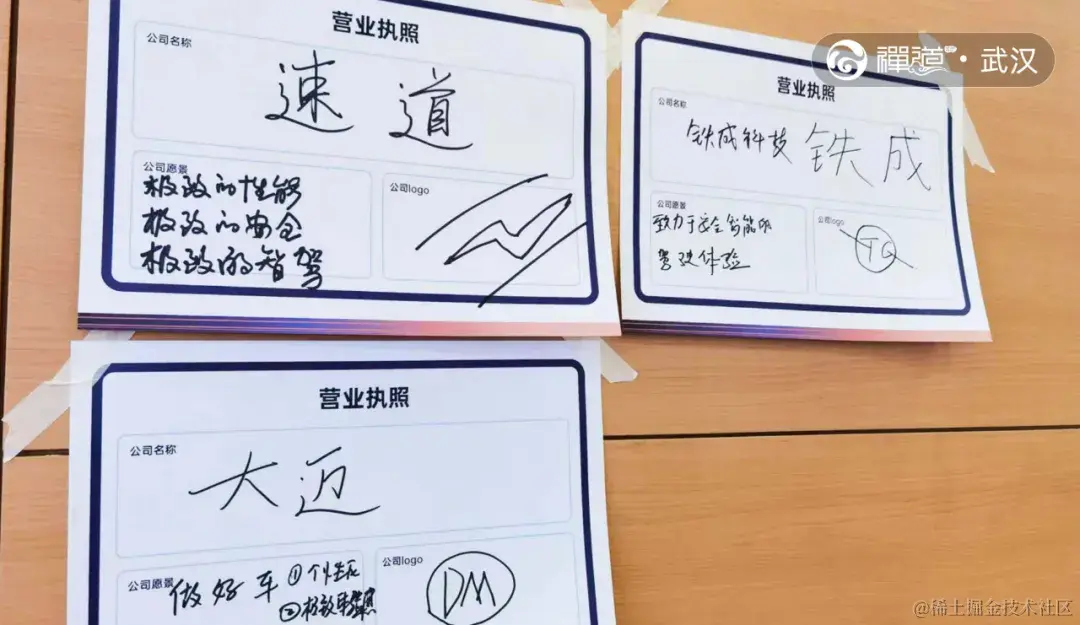 营业执照
公司名称
速道
公司愿景
极致的性能
极致的安全
极致的智驾
公司logo
营业执照
公司名称
铁成科技 铁成
公司愿景
致力于安全智能的
驾驶体验
公司logo
TC
禅道·武汉
营业执照
公司名称
大迈
公司愿景
做好车 ①个性化
②极致
公司logo
DM
@稀土掘金技术社区